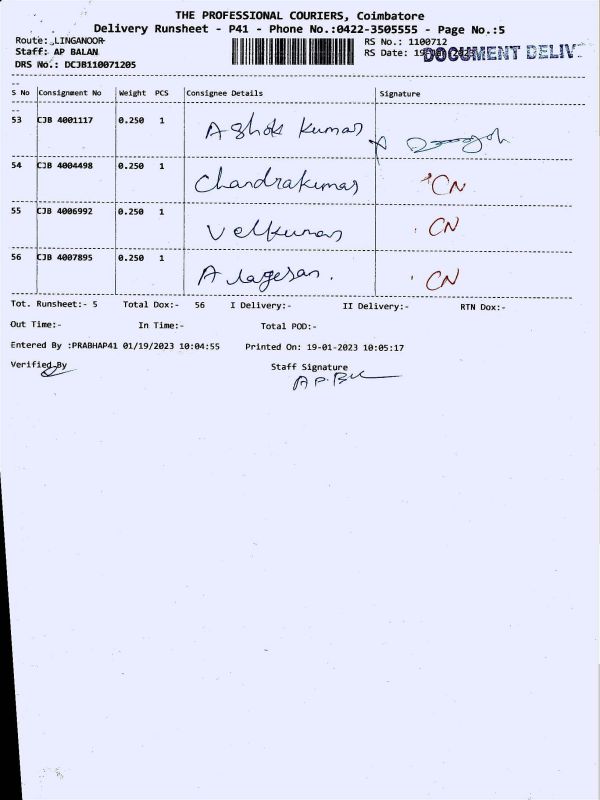 THE PROFESSIONAL COURIERS, Coimbatore
Delivery Runsheet - P41 - Phone No.:0422-3505555 - Page No.:5
Route: LINGANOOR
RS No.: 1100712
Staff: AP BALAN
RS Date: 19
DOCUMENT DELIV
DRS No.: DCJB110071205
S No Consignment No Weight PCS Consignee Details Signature
53 CJB 4001117 0.250 1 Ashok Kumar
54 CJB 4004498 0.250 1 Chandrakumar CN
55 CJB 4006992 0.250 1 Velkumar CN
56 CJB 4007895 0.250 1 Alagesan. CN
Tot. Runsheet:- 5 Total Dox:- 56 I Delivery:- II Delivery:- RTN Dox:-
Out Time:- In Time:- Total POD:-
Entered By :PRABHAP41 01/19/2023 10:04:55 Printed On: 19-01-2023 10:05:17
Verified By Staff Signature